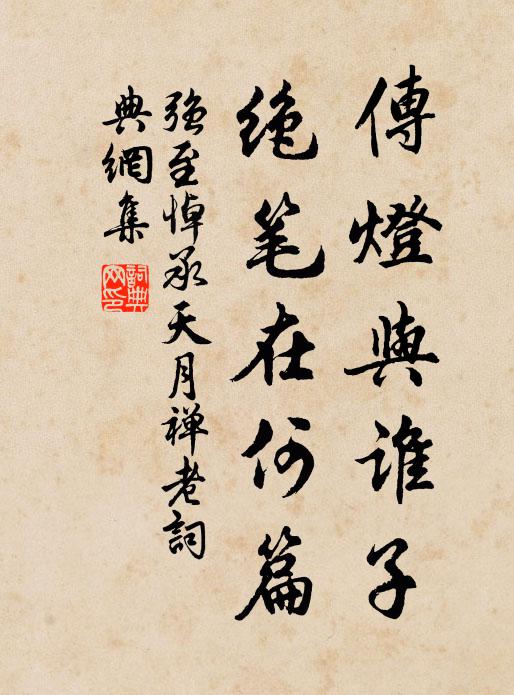 傳燈與誰子
绝笔在何篇
强至悼承天月禅老詞
典網集
詞典
网印